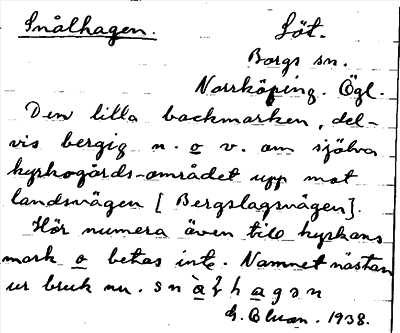 Snålhagen. Löt.
Borgs sn.
Norrköping. Ögl.
Den lilla backmarken, del-
vis bergig n. o v. om själva
kyrkogårds-området upp mot
landsvägen [Bergslagsvägen].
Hör numera även till kyrkans
mark o betas inte. Namnet nästan
ur bruk nu. snàɫhagən
1938.